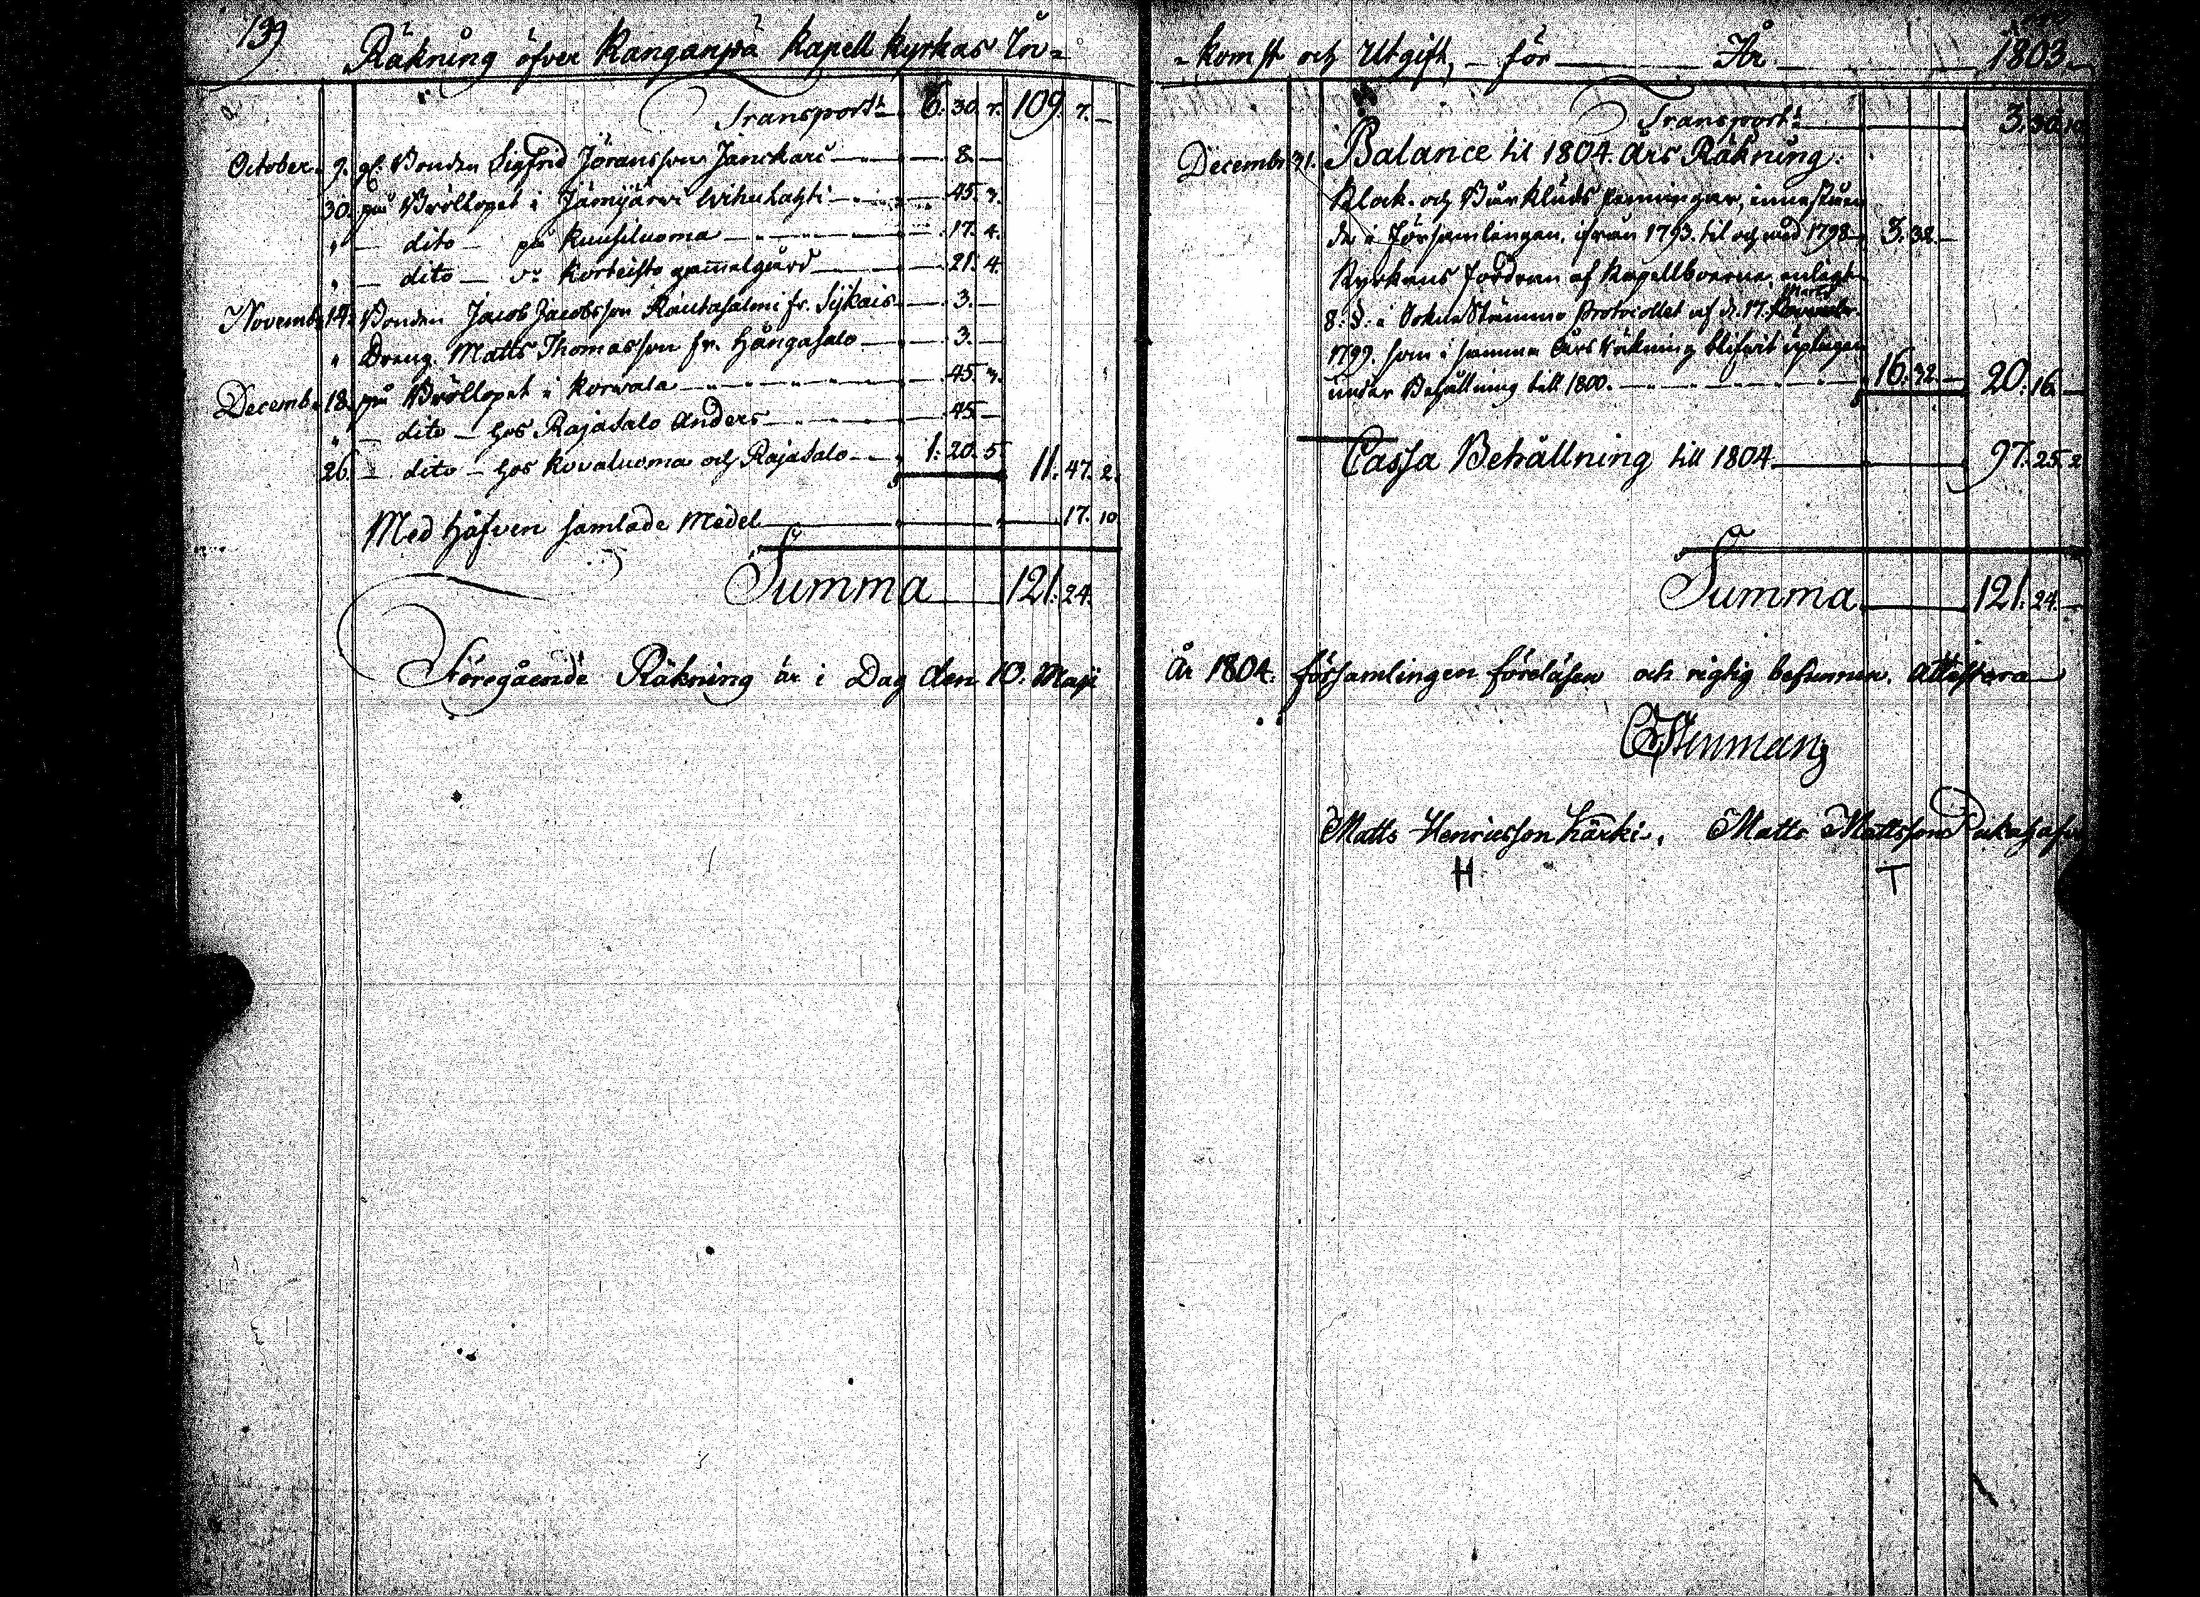 139
Räkning öfver Kanganpää Kapell Kyrkas In-
Transport 6. 30. 7. 109. 7. -
October 9. gl. Bonden Sigfrid Jöransson Janckari 8. -
30. på Bröllopet i Jämijärvi Wihulahti 45. 3.
" - dito - på Kuusiluoma 17. 4.
" - dito - Korteisto gam̄elgård 21. 4.
Novemb. 14. Bonden Jacob Jacobsson Rautasalmi fr. Sijkais 3. -
" Dreng. Matts Thomasson fr. Hångasalo 3. -
Decemb. 18. på Bröllopet i Korwala 45. 3.
" - dito - hos Rajasalo Anders 45. -
26. - dito - hos Kovaluoma och Rajasalo 1. 20. 5. 11. 47. 2.
Med Håfven samlade Medel 17. 10.
Summa 121. 24.
Föregående Räkning är i Dag den 10. Maji
-komst och Utgift, - för År 1803.
Transport 3. 30. 10
Decembr. 31. Balance til 1804 års Räkning:
Klock- och Bårkläds penningar, inneståen
de i Församlingen, ifrån 1793. til och med 1798 3. 32. -
Kyrkans fordran af Kapellboerne, enligt
8. §. i Sockne Stämmo Protocollet af d. 17. Martii
1799. som i samma Års Räkning blifvit uptagen
under Behållning till 1800. 16. 32. - 20. 16. -
Cassa Behållning till 1804 97. 25. 2
Summa 121. 24. -
År 1804. församlingen föreläsen och rigtig befunnen. Attestera
Matts Henricsson Kärki. Matts Mattsson
H T